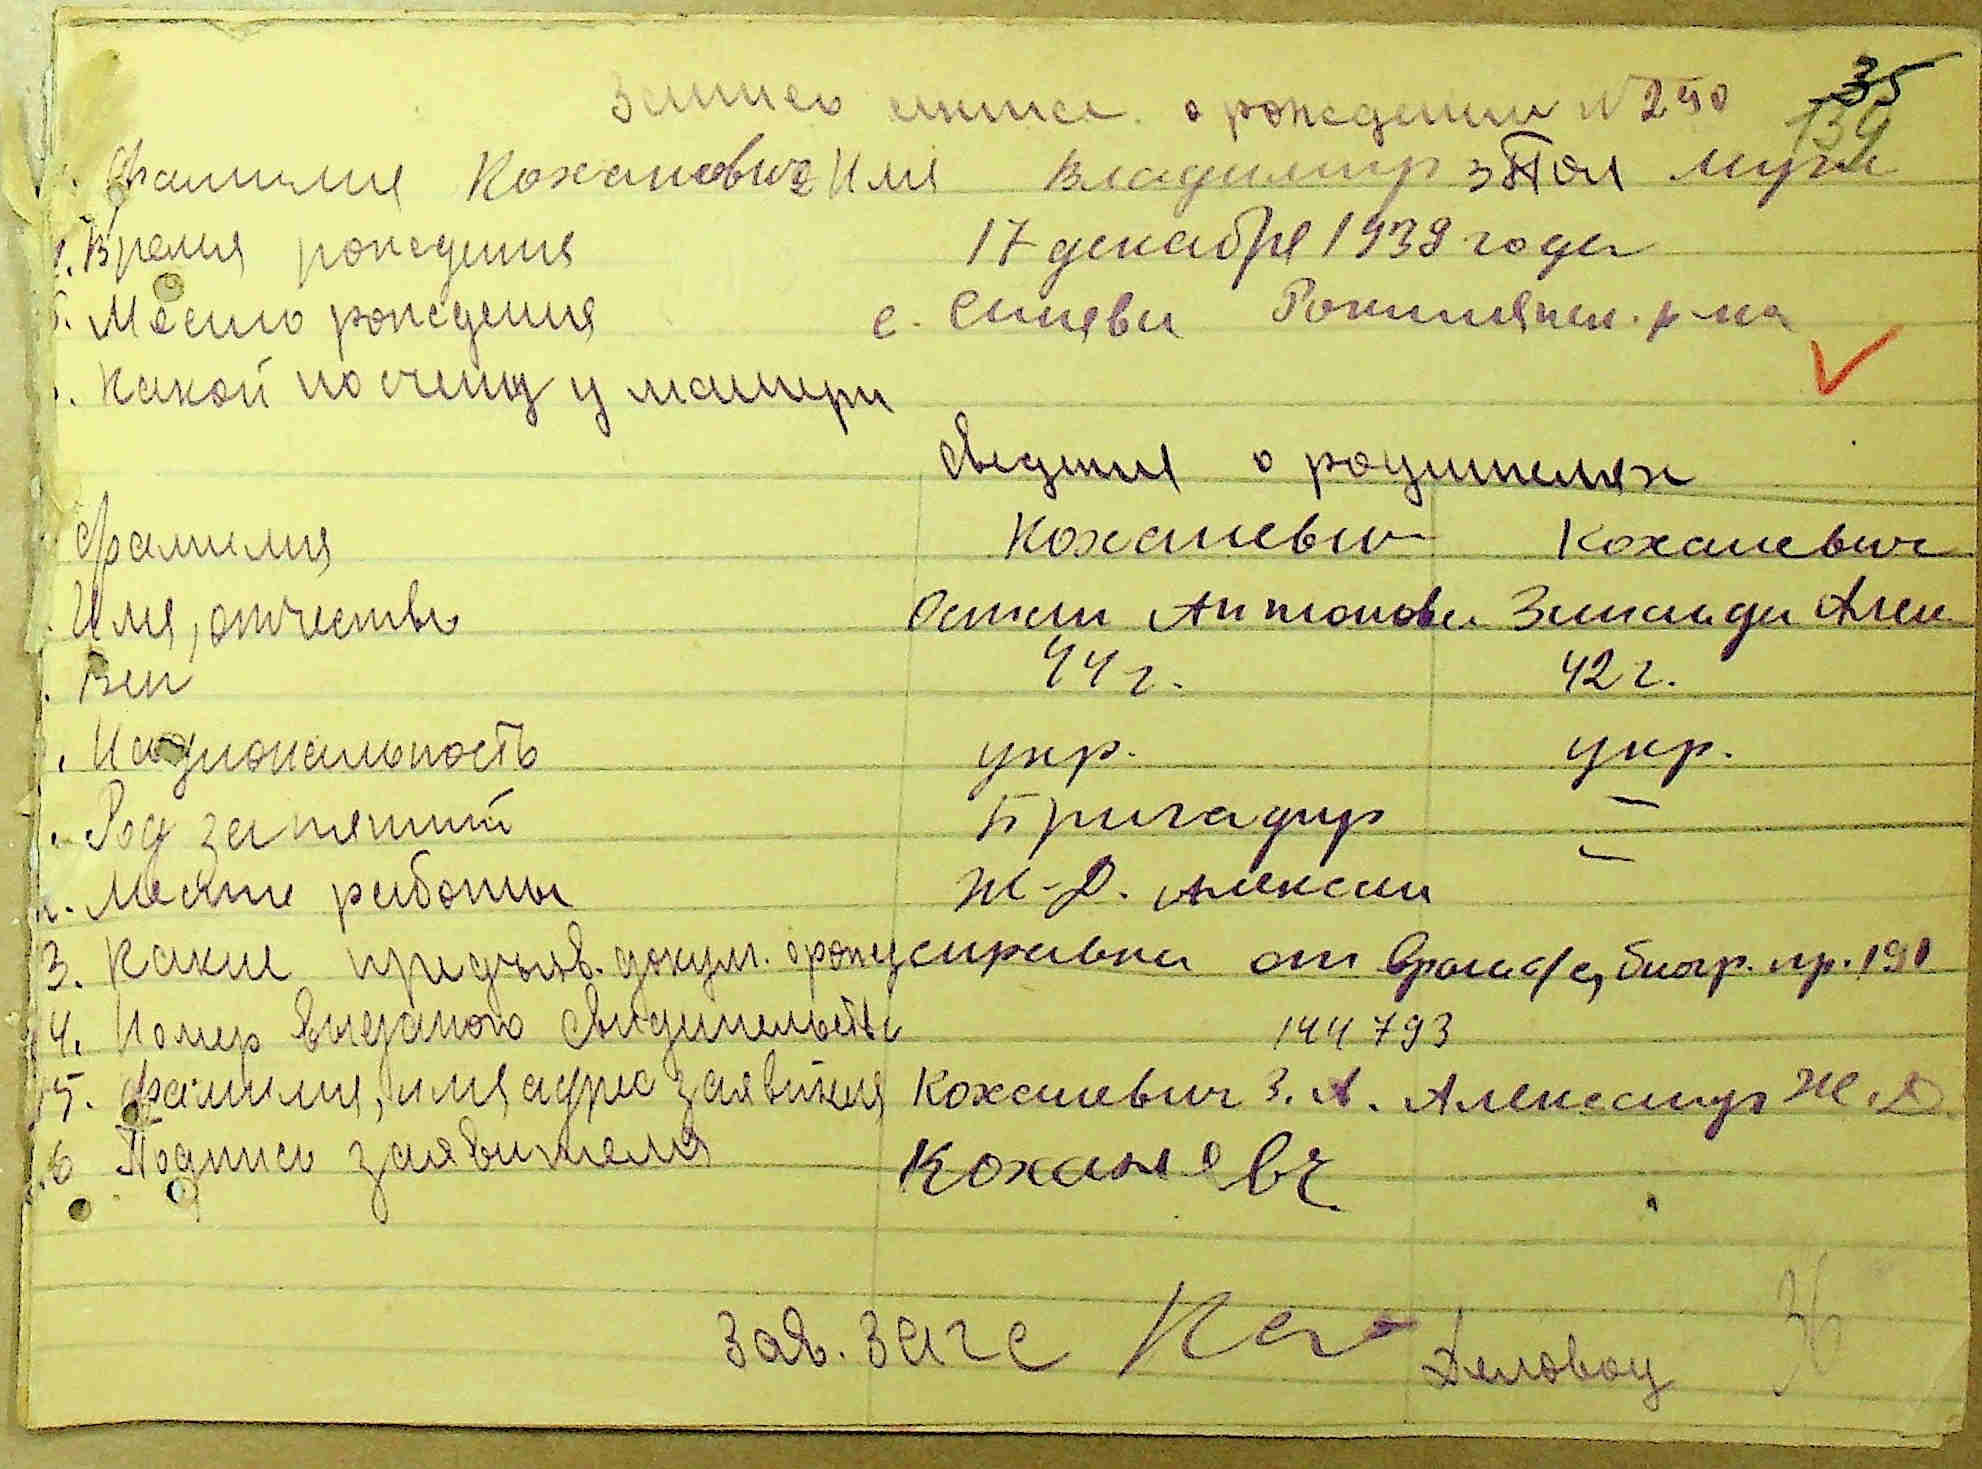 35
139
Запись акта о рождении N 290
Фамилия Коханевич Имя Владимир 3 Пол муж
Время рождения 17 декабря 1939 года
Место рождения с. Рокитнянск. р-на
Какой по счету у матери
Сведения о родителях
Фамилия Коханевич Коханевич
Имя, отчество Остап Антонови Зинаида Алек
Век 44 г. 42 г.
Национальность укр. укр.
Род занятий Бригадир —
Место работы Ж-Д. —
3. Какие предъяв. докум. о рожд справка от пр. 190
4. Номер выданого свидетельства 144793
15. Фамилия, имя адрес заявителя Коханевич З. А. Ж.Д
16 Подпись заявителя Коханевч
Зав. Загс Деловод
36